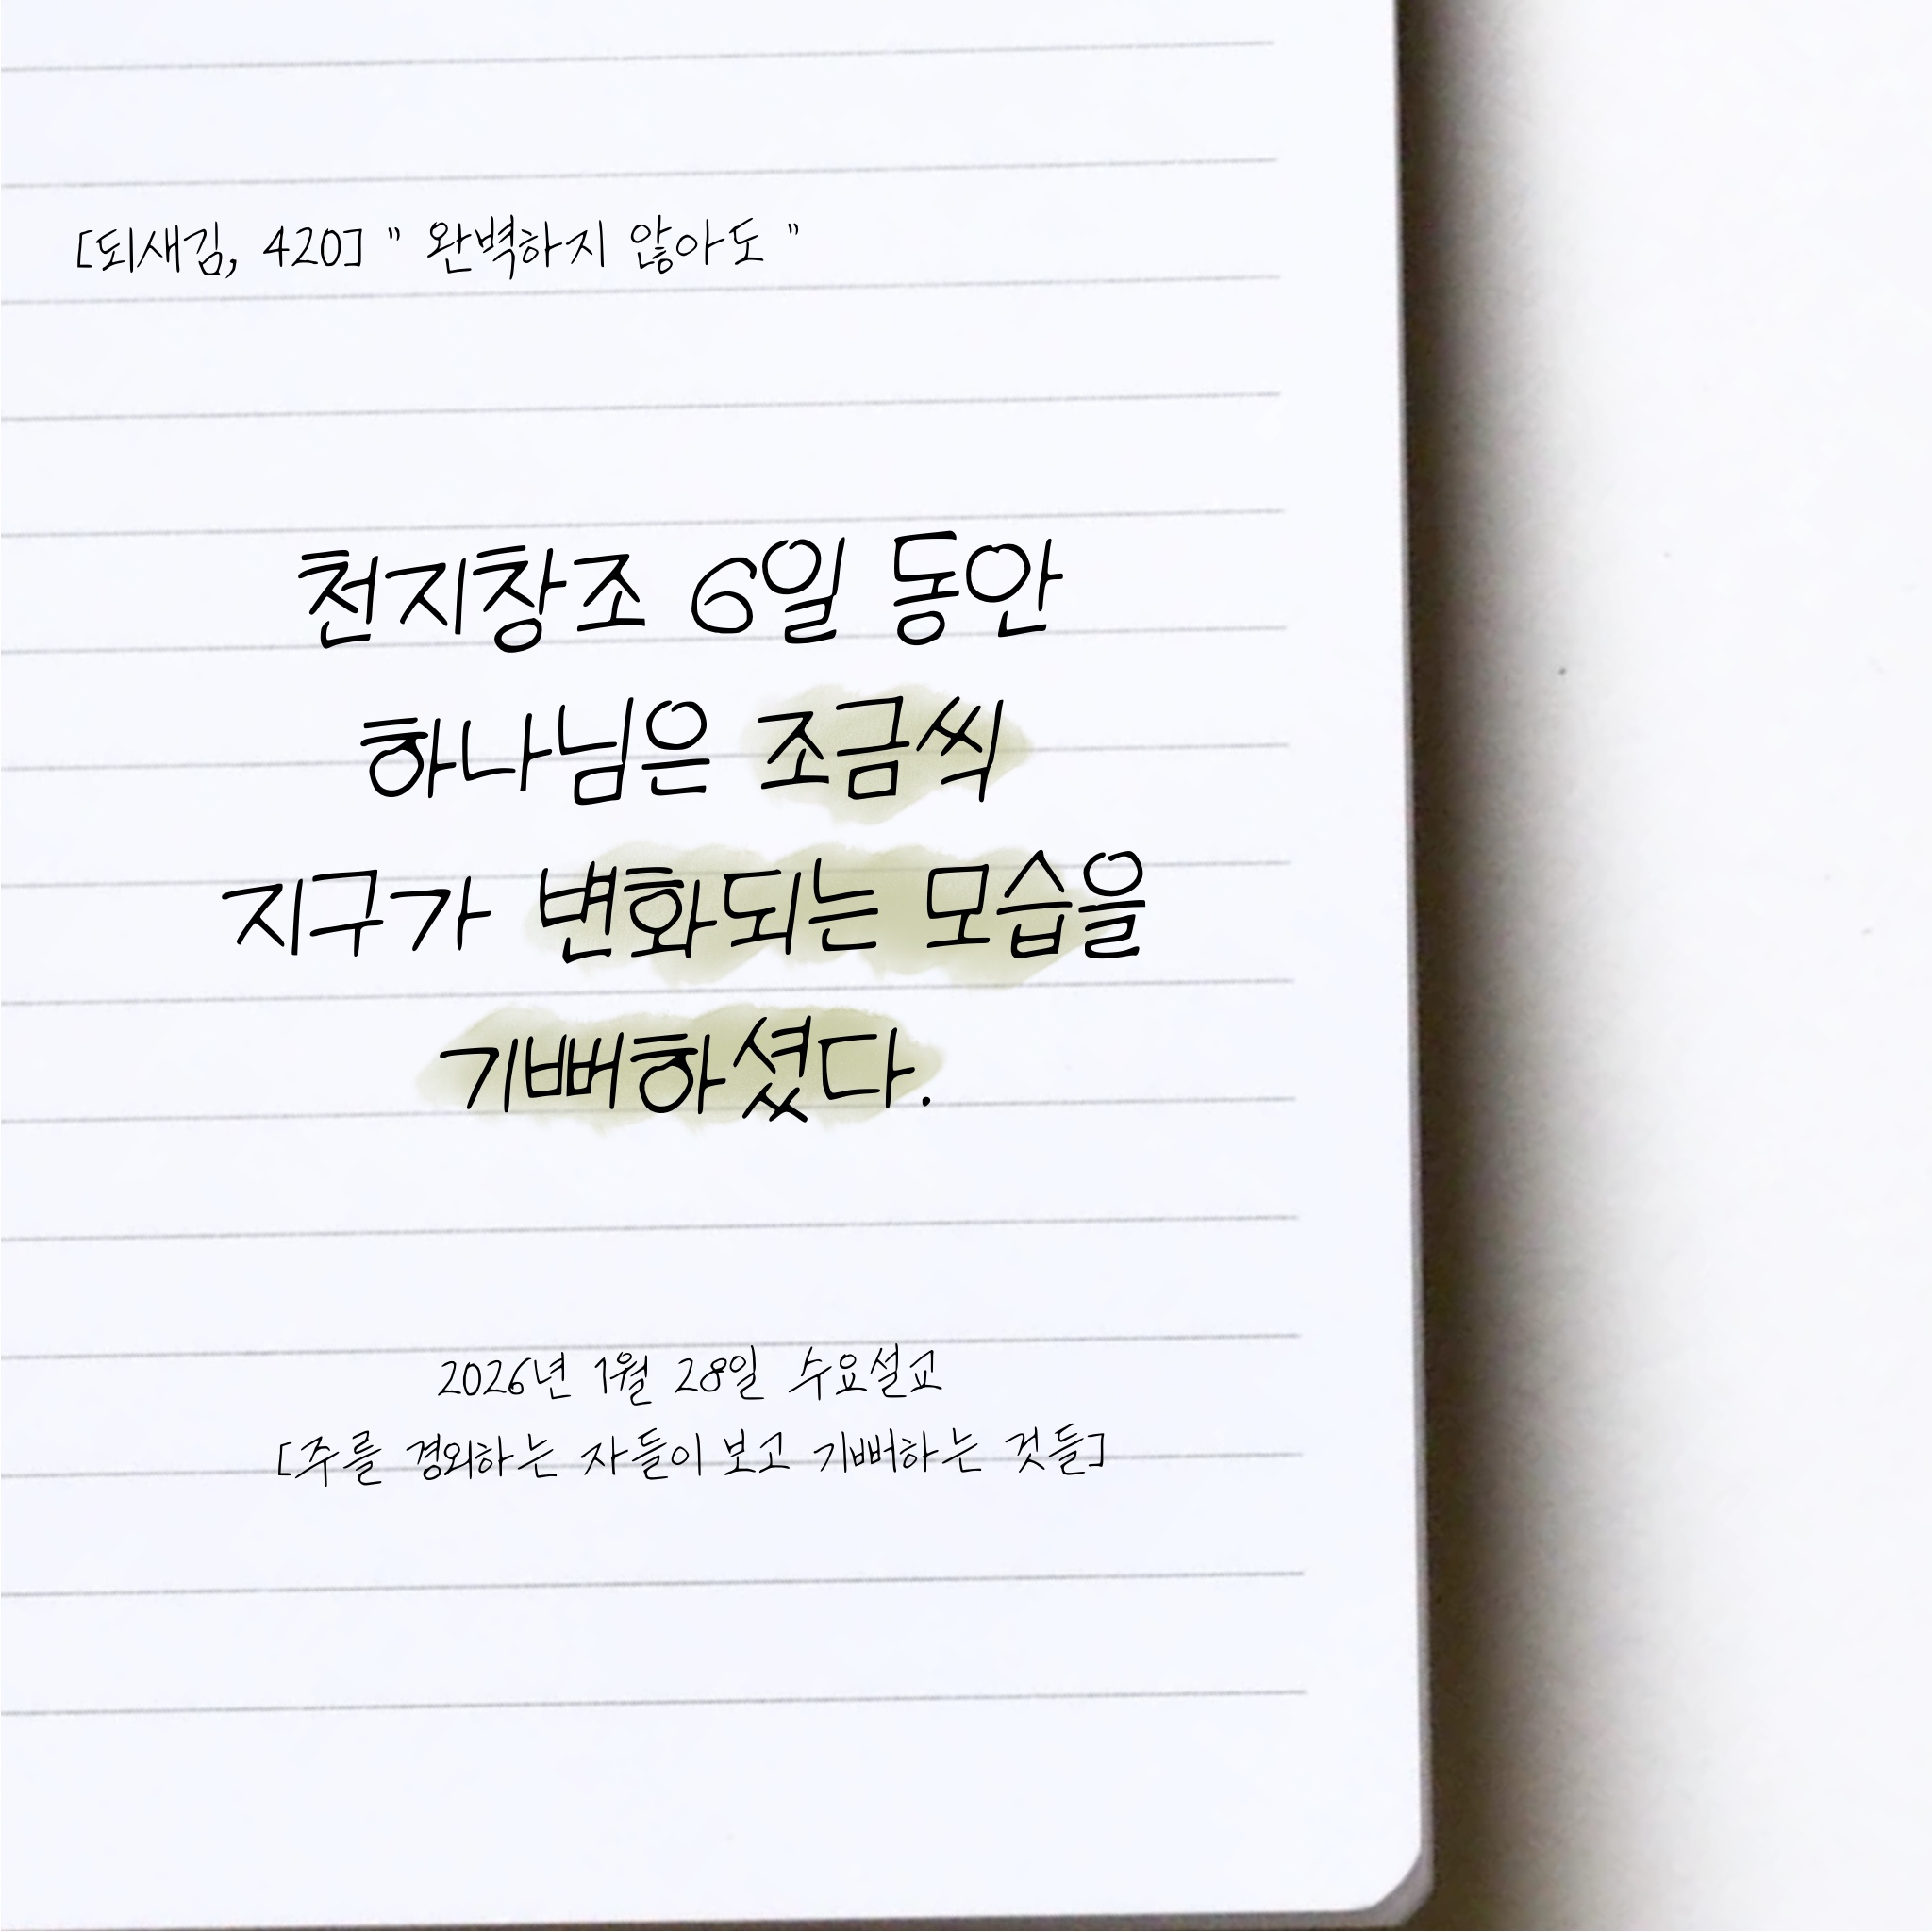 [되새김, 420] " 완벽하지 않아도 "
천지창조 6일 동안
하나님은 조금씩
지구가 변화되는 모습을
기뻐하셨다.
2026년 1월 28일 수요설교
[주를 경외하는 자들이 보고 기뻐하는 것들]